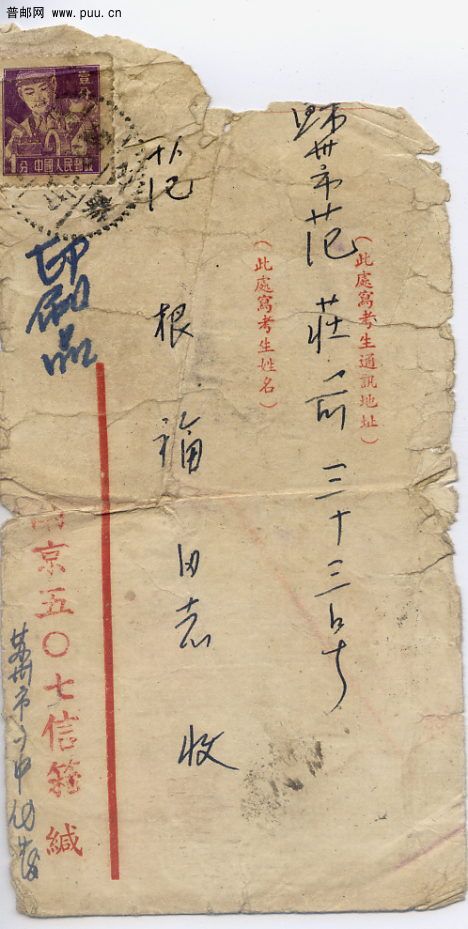 普邮网 www.puu.cn
壹分
1分 中國人民郵政
(此處寫考生通訊地址)
蘇州市范莊前三十三号
(此處寫考生姓名)
范根福同志收
印刷品
南京五〇七信箱緘
蘇州市